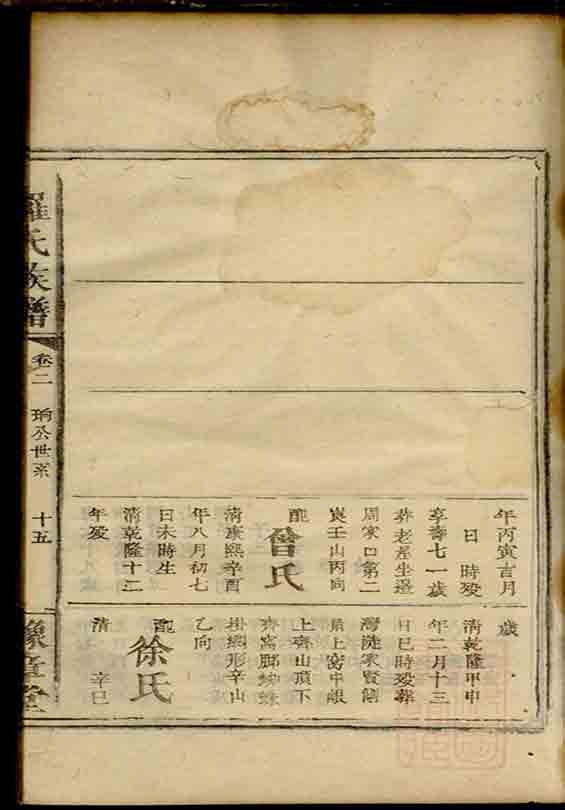 年丙寅吉月
日 時殁
享壽七一歲
葬老屋坐邊
周家口第二
嵗壬山丙向
配
曾氏
清康熙辛酉
年八月初七
日未時生
清乾隆十二
年殁
歲
清乾隆甲申
年二月十三
日巳時殁葬
灣陡家賢側
上窩中
上齊山頂下
齊窩脚蜘蛛
掛網形辛山
乙向
配
徐氏
清 辛巳
羅氏族譜
卷二
公世系
十五
豫章堂